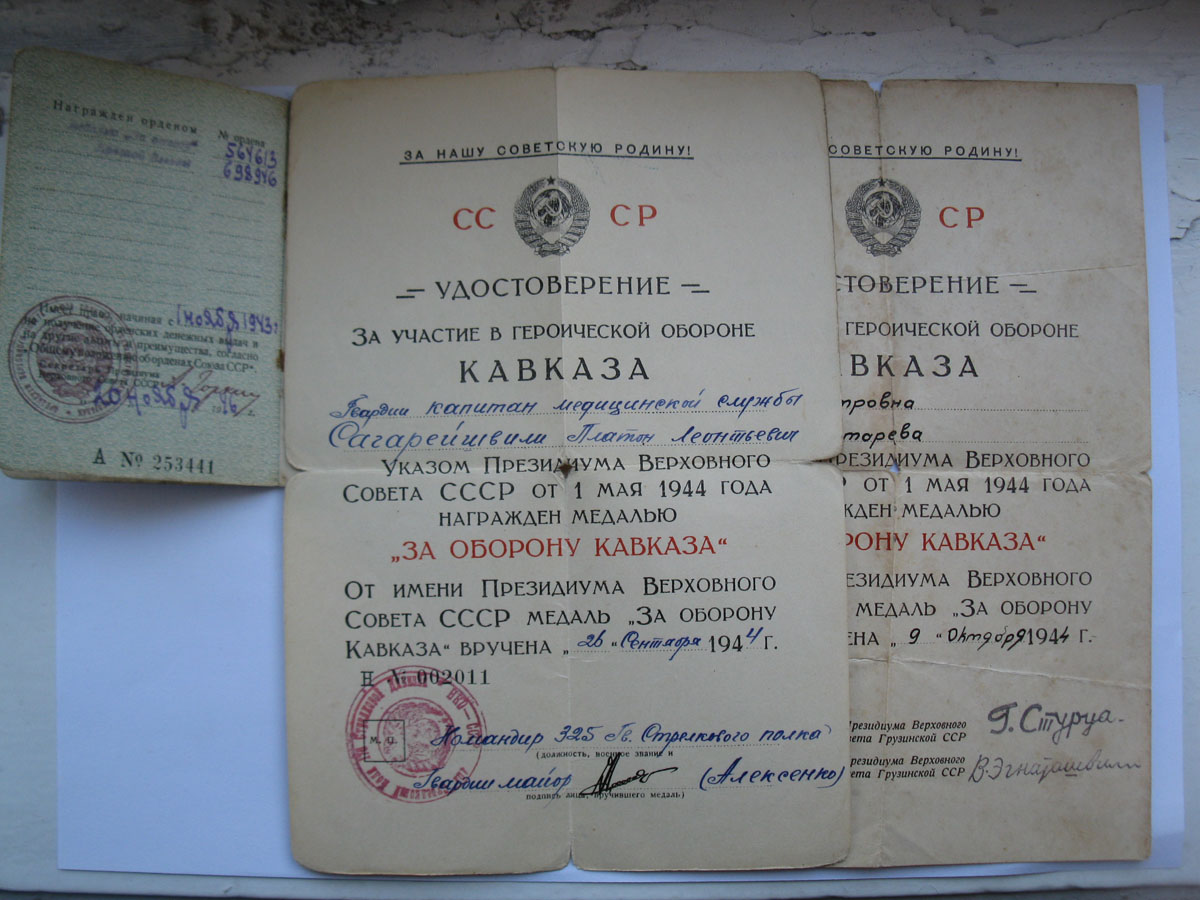 Награжден орденом
№ ордена
564613
698946
Имеет право, начиная с 1 ноября 1943 г.
Общему положению об орденах Союза ССР".
20 ноября 1946 г.
А № 253441
ЗА НАШУ СОВЕТСКУЮ РОДИНУ!
СС СР
УДОСТОВЕРЕНИЕ
ЗА УЧАСТИЕ В ГЕРОИЧЕСКОЙ ОБОРОНЕ
КАВКАЗА
Гвардии капитан медицинской службы
Сагарейшвили Платон Леонтьевич
УКАЗОМ ПРЕЗИДИУМА ВЕРХОВНОГО
СОВЕТА СССР ОТ 1 МАЯ 1944 ГОДА
НАГРАЖДЕН МЕДАЛЬЮ
„ЗА ОБОРОНУ КАВКАЗА“
ОТ ИМЕНИ ПРЕЗИДИУМА ВЕРХОВНОГО
СОВЕТА СССР МЕДАЛЬ „ЗА ОБОРОНУ
КАВКАЗА“ ВРУЧЕНА „26“ Сентября 1944 г.
Н № 002011
М. П.
Командир 325 Гв. Стрелкового полка
(должность, военное звание и
Гвардии майор (Алексенко)
подпись лица, вручившего медаль)
СОВЕТСКУЮ РОДИНУ!
СР
СТОВЕРЕНИЕ
ГЕРОИЧЕСКОЙ ОБОРОНЕ
ВКАЗА
тровна
тарева
РЕЗИДИУМА ВЕРХОВНОГО
Р ОТ 1 МАЯ 1944 ГОДА
ЖДЕН МЕДАЛЬЮ
РОНУ КАВКАЗА“
ЕЗИДИУМА ВЕРХОВНОГО
МЕДАЛЬ „ЗА ОБОРОНУ
ЕНА „9“ Октября 1944 г.
Президиума Верховного
ета Грузинской ССР
Г. Стуруа.
Президиума Верховного
ета Грузинской ССР
В. Эгнаташвили